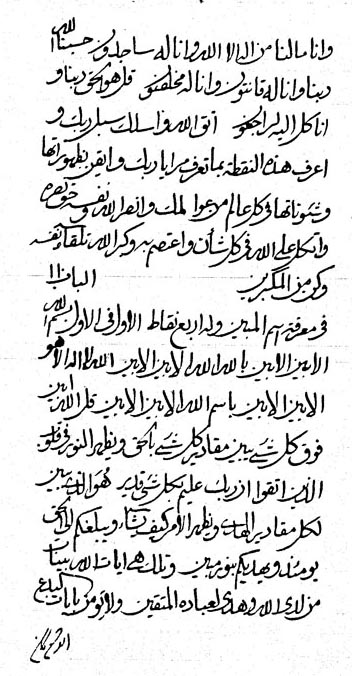 وانا مالنا من اله الا الله وانا له ساجدون حسبنا الله
ربنا وانا له قانتون وانا له مخلصون قل هو الحق ربنا و
انا كل اليه راجعون اتق الله واسلك سبل ربك و
اعرف هذه النقطة بما تعرف مرايا ربك وايقن بظهوراتها
وشئوناتها في كل عالم الملك وانصر الله
واتكل على الله في كل شأن واعتصم به وكبر الله تلقاء نفسه
وكن من المكبرين الباب ١١
في معرفة اسم المبين وله اربع نقاط الاول في الاول بسم الله
الابين الابين بالله الله الابين الابين الله لا اله الا هو
الابين الابين باسم الله الابين الابين قل الله ابين
فوق كل شيء يبين مقادير كل شيء بالحق ويظهر النور في قلوب
الذين اتقوا ان ربك عليم بكل شيء قدير هو الذي يبين
لكل مقادير الهدى ويظهر الامر كيف يشاء ويبلغكم الى الحق
يومئذ ويهديكم بنور مبين وتلك هي ايات الله بينات
من لدى الله وهدى لعباده المتقين من بايات